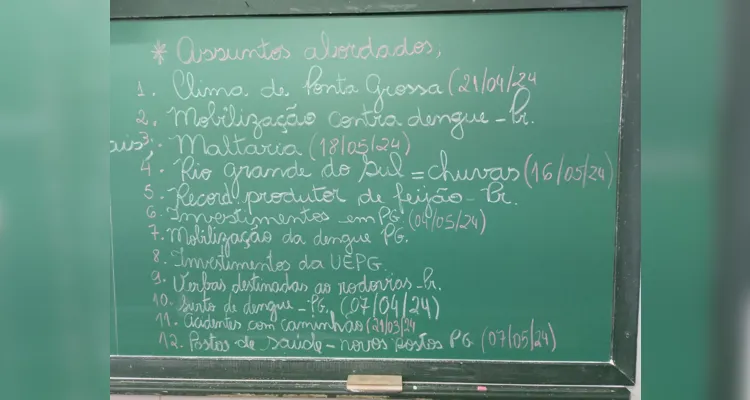 * Assuntos abordados,
1. Clima de Ponta Grossa (21/04/24
2. Mobilização contra dengue - Pr.
3. Maltaria (18/05/24)
4. Rio Grande do Sul = chuvas (16/05/24)
5. Record produtor de feijão - Pr.
6. Investimentos em PG (04/05/24)
7. Mobilização da dengue PG.
8. Investimentos da UEPG.
9. Verbas destinadas ao rodovias - Pr.
10. Surto de dengue - PG. (07/04/24)
11. acidentes com caminhão (21/03/24
12. Postos de saúde - novos postos PG (07/05/24)